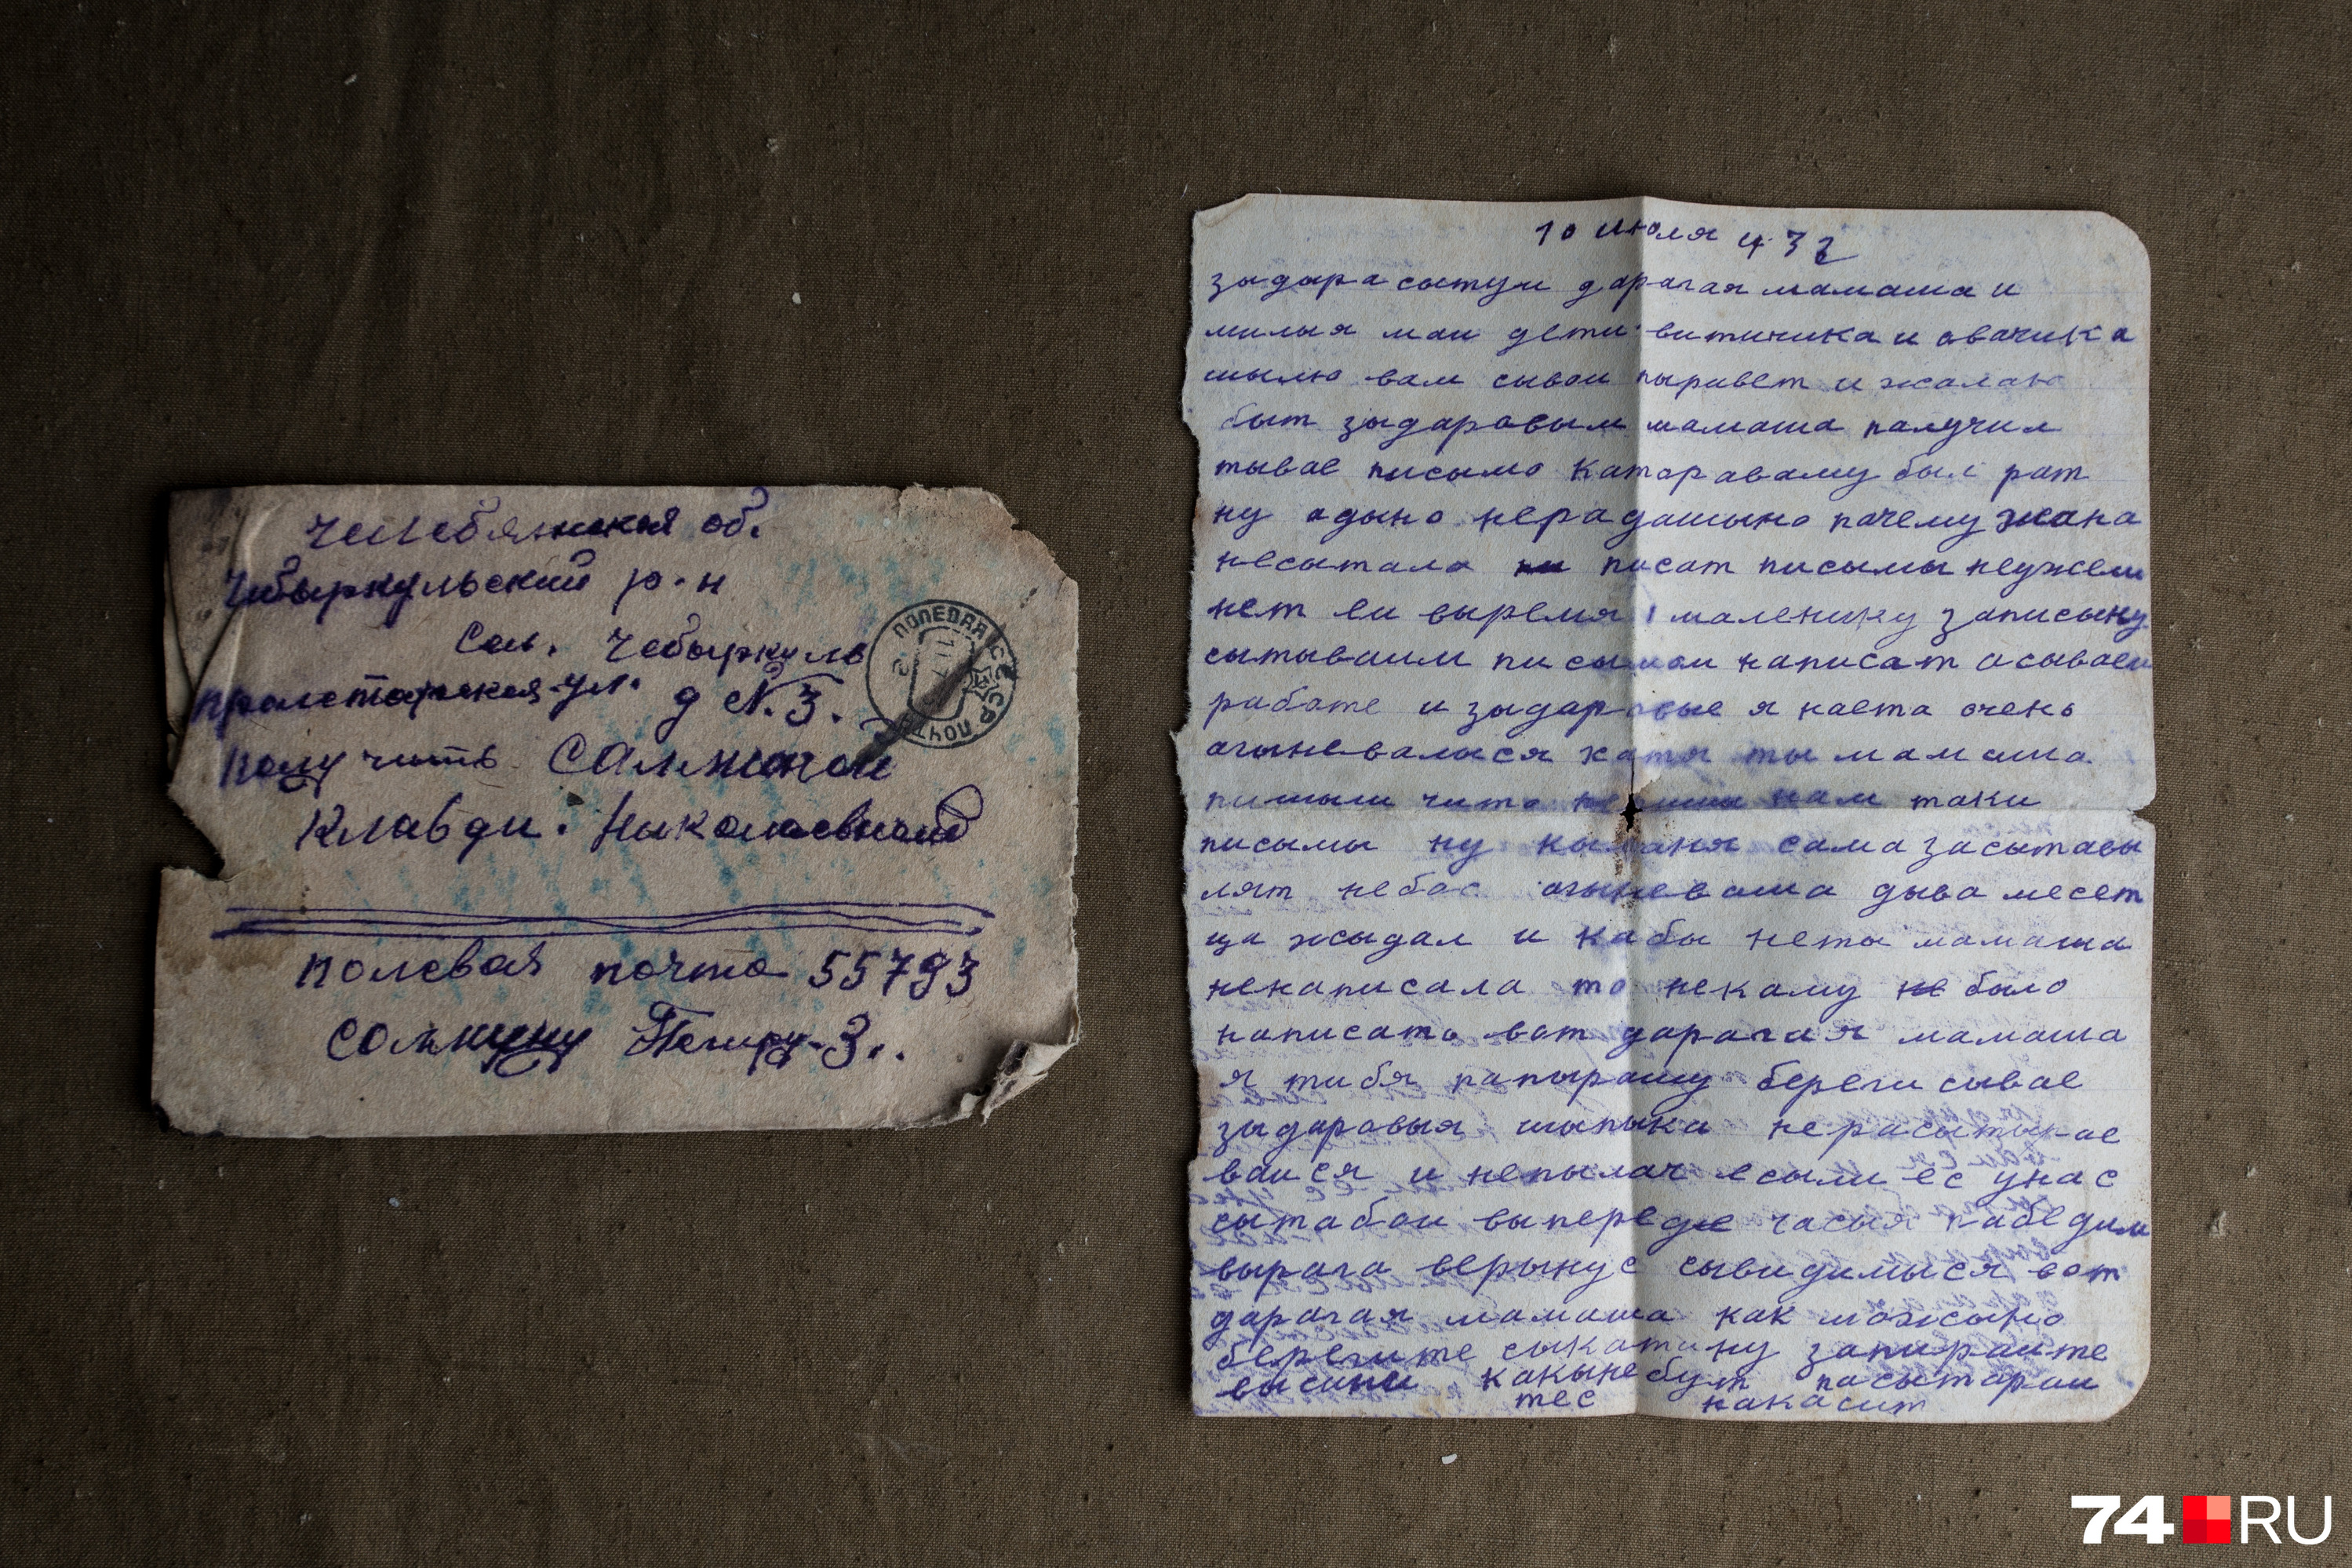 Челебянская об.
Чебыркульский р-н
Сел. Чебыркуль
пролетарская ул. д №.3.
получить Салминой
Клавди. Николаевной
полевая почта 55793
Петру З..
ПОЛЕВАЯ
СССР
ПОЧТА
10 июля 43г
зыдарасытуи дарагая мамаша и
милыя маи дети витичика и авачика
шылю вам сываи пыривет и жалаю
быт зыдаравым мамаша палучил
тывае писымо катораваму был рат
ну адыно нерадашыно почему жана
несытала писат писымы неужели
нет еи выремя маленику записыну
сытываим писымом написат асываеи
работе и зыдаровые я наета очень
агыневалыся катя ты мамаша
пишыш чито нам таки
писымы ну сама засытавы
лят небос дыва месет
ца жыдал и кабы неты мамаша
ненаписала то некаму не было
написать вот дарагая мамаша
я тибя папырашу береги сывае
зыдаровыя шыпыка нерасытырае
ваися и непылач есыли ес унас
сытабои выпереде часыя пабедим
вырага верынус сывидимыся вот
дарагая мамаша как можыно
берегите сыкатину запираите
какынебут пасытараи
тес накасит
74 RU